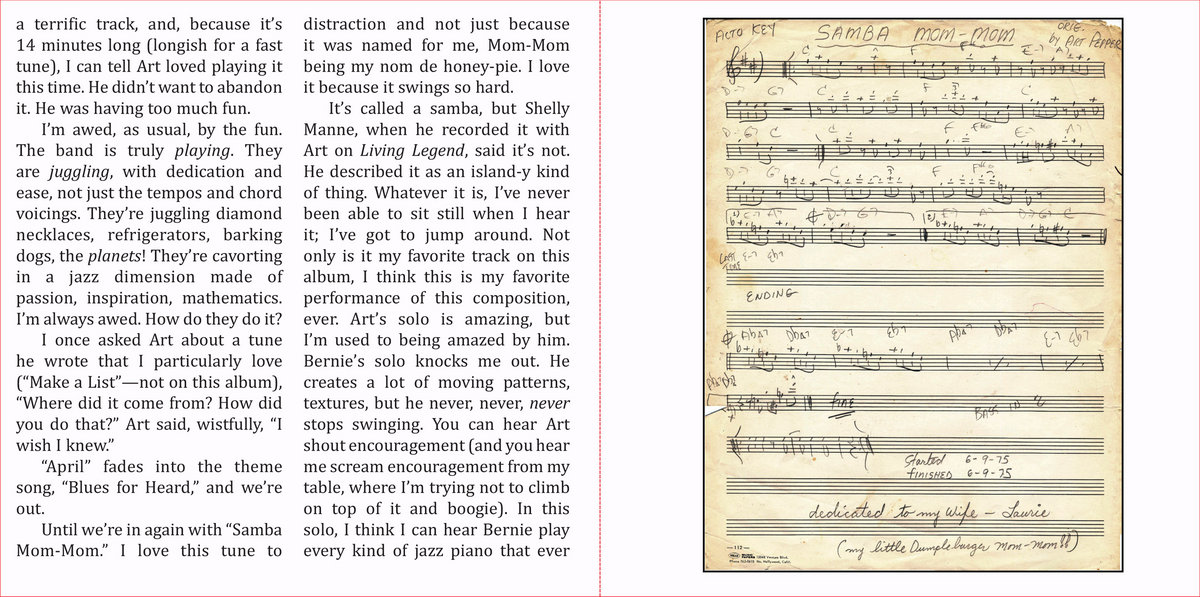 a terrific track, and, because it’s
14 minutes long (longish for a fast
tune), I can tell Art loved playing it
this time. He didn’t want to abandon
it. He was having too much fun.
I’m awed, as usual, by the fun.
The band is truly playing. They
are juggling, with dedication and
ease, not just the tempos and chord
voicings. They’re juggling diamond
necklaces, refrigerators, barking
dogs, the planets! They’re cavorting
in a jazz dimension made of
passion, inspiration, mathematics.
I’m always awed. How do they do it?
I once asked Art about a tune
he wrote that I particularly love
(“Make a List”—not on this album),
“Where did it come from? How did
you do that?” Art said, wistfully, “I
wish I knew.”
“April” fades into the theme
song, “Blues for Heard,” and we’re
out.
Until we’re in again with “Samba
Mom-Mom.” I love this tune to
distraction and not just because
it was named for me, Mom-Mom
being my nom de honey-pie. I love
it because it swings so hard.
It’s called a samba, but Shelly
Manne, when he recorded it with
Art on Living Legend, said it’s not.
He described it as an island-y kind
of thing. Whatever it is, I’ve never
been able to sit still when I hear
it; I’ve got to jump around. Not
only is it my favorite track on this
album, I think this is my favorite
performance of this composition,
ever. Art’s solo is amazing, but
I’m used to being amazed by him.
Bernie’s solo knocks me out. He
creates a lot of moving patterns,
textures, but he never, never, never
stops swinging. You can hear Art
shout encouragement (and you hear
me scream encouragement from my
table, where I’m trying not to climb
on top of it and boogie). In this
solo, I think I can hear Bernie play
every kind of jazz piano that ever
ALTO KEY
SAMBA MOM-MOM
ORIG.
by ART PEPPER
C F E-7 A7
D-7 G7 C F C
D-7 G7 C C F F#o E-7 A7
D-7 G7 C F F#o
1) E-7 A7 D-7 G7 2) E-7 A7 D-7 G7 C
LAST TIME E-7 Eb7
ENDING
Ab7 Db7 E-7 Eb7 Ab7 Db7 E-7 Eb7
FINE
BASS IN 2
Started 6-9-75
FINISHED 6-9-75
dedicated to my Wife - Laurie
(my little Dumpleburger mom-mom!!)
—112—